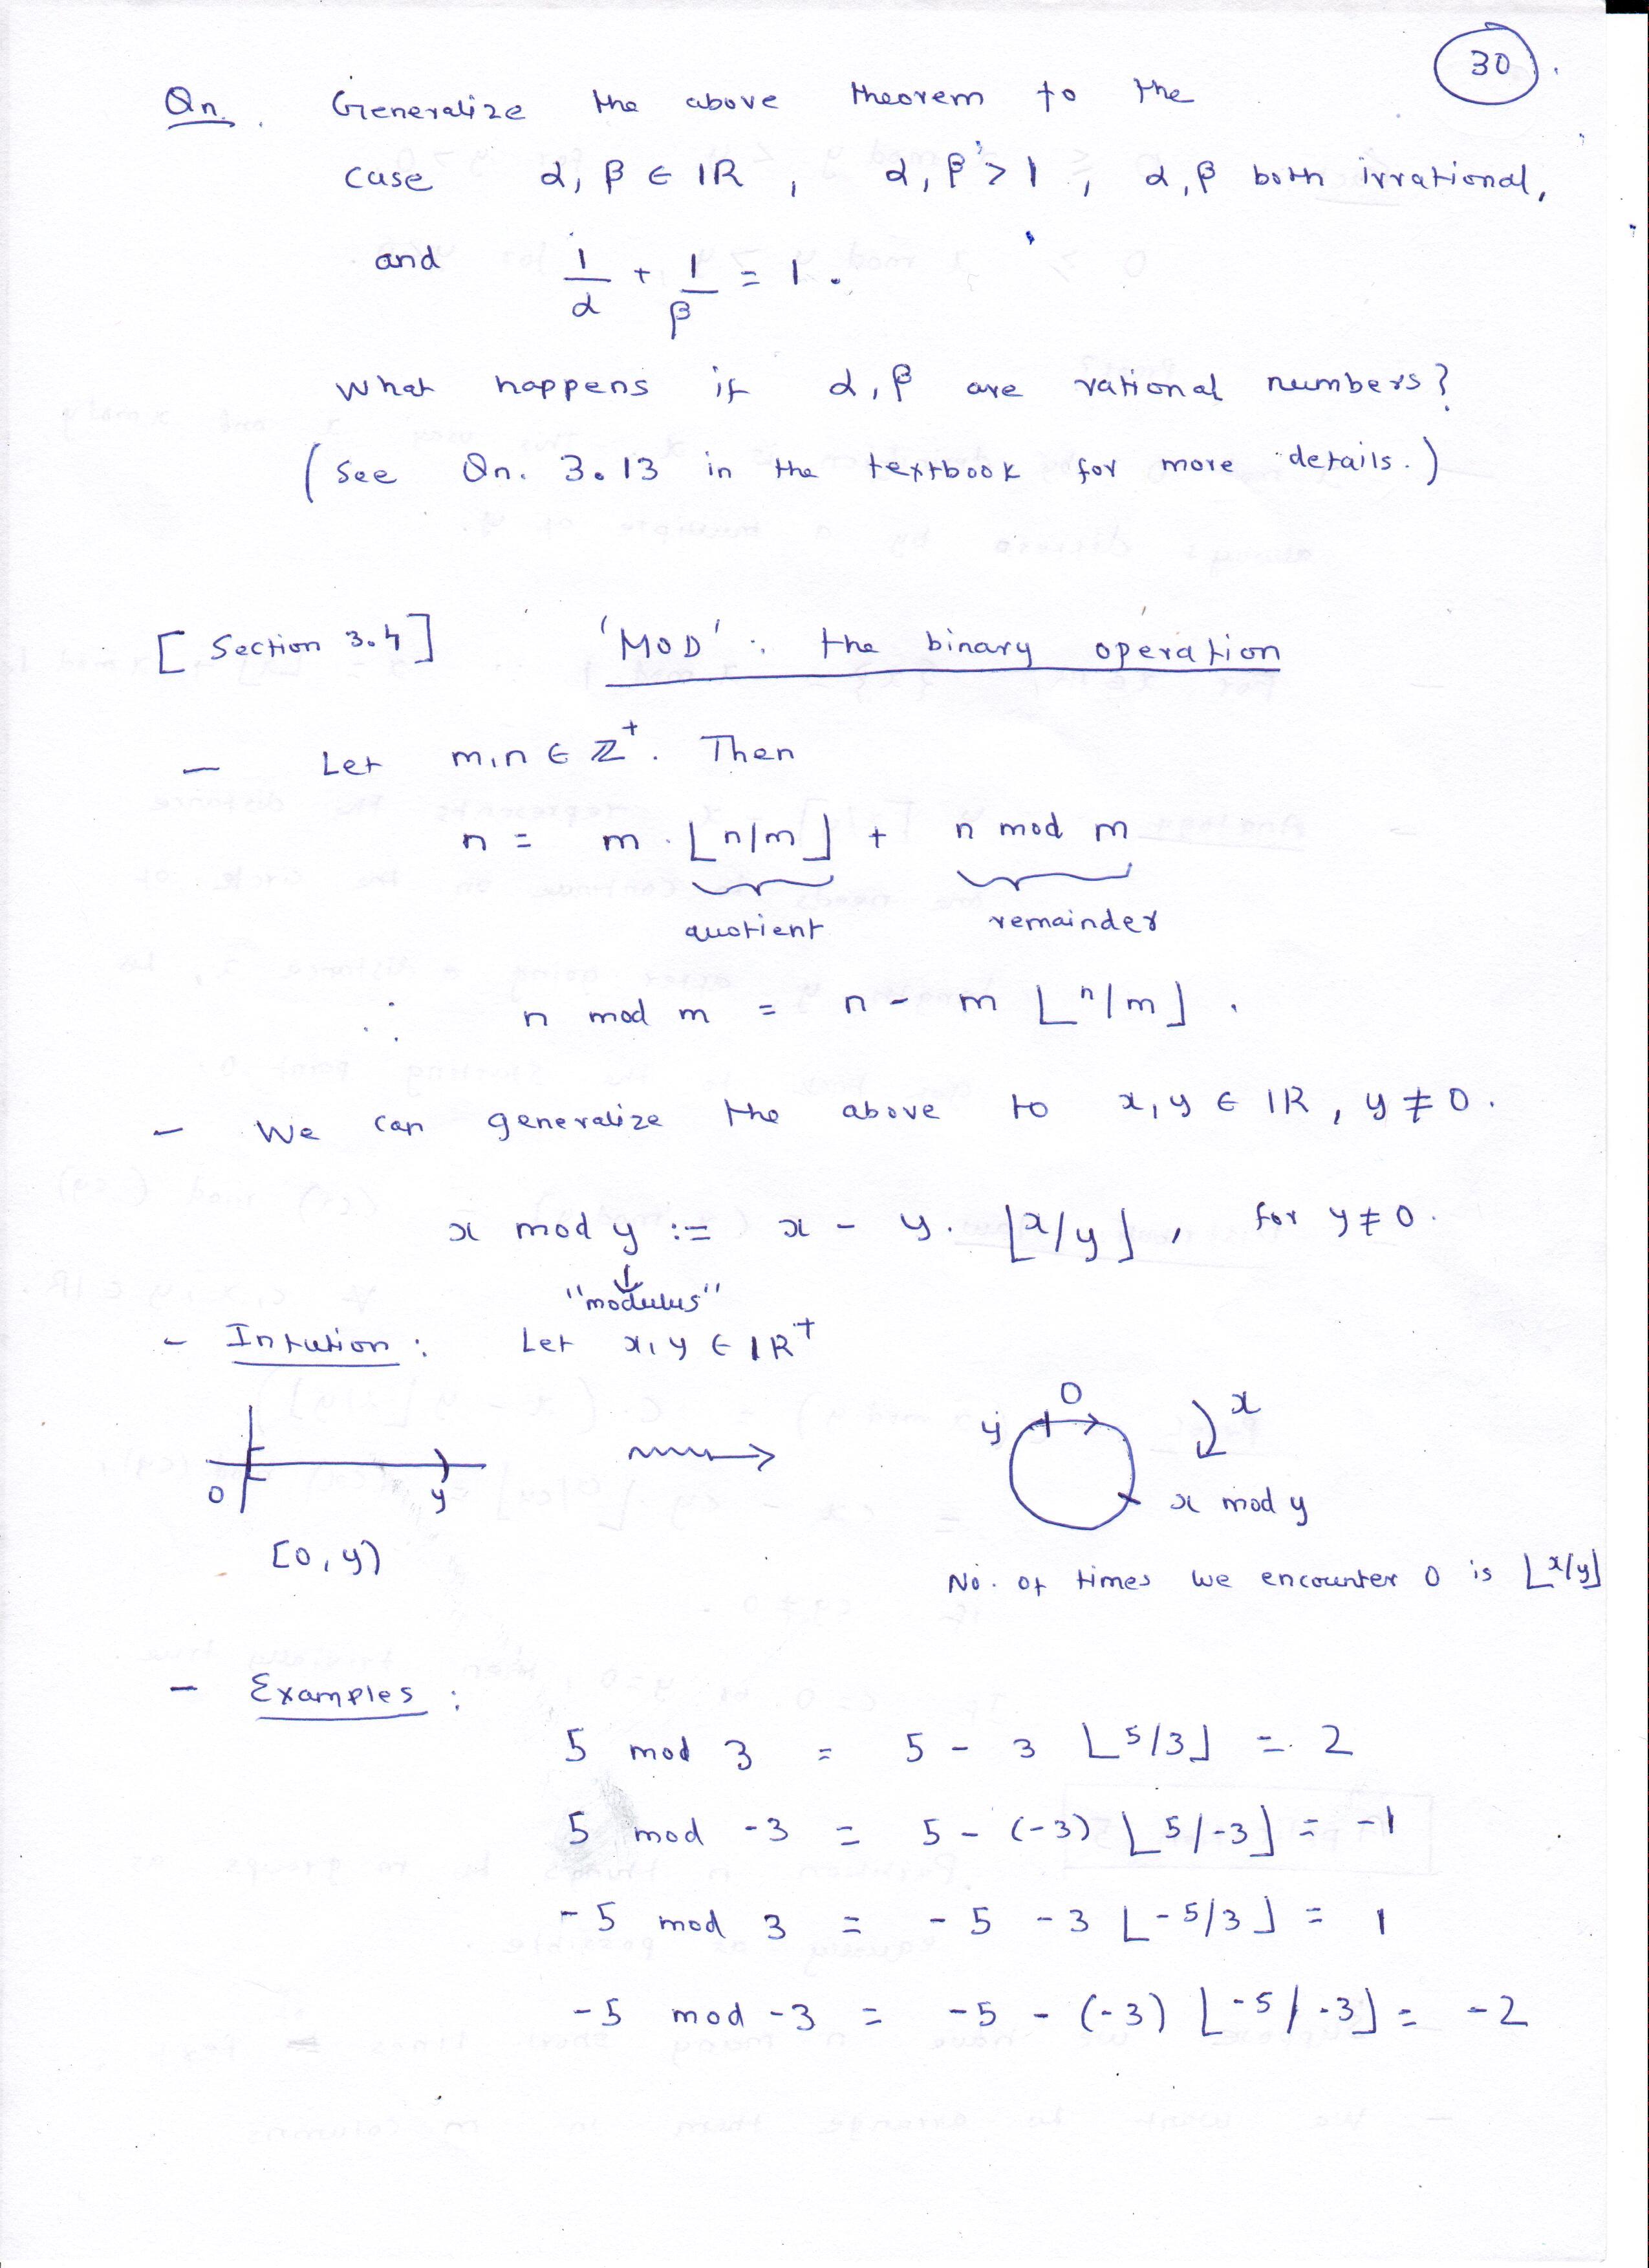 30
Qn. Generalize the above theorem to the
case α, β ∈ ℝ, α, β > 1, α, β both irrational,
and 1/α + 1/β = 1.
What happens if α, β are rational numbers?
(See Qn. 3.13 in the textbook for more details.)
[Section 3.4] 'MOD': the binary operation
— Let m, n ∈ ℤ⁺. Then
n = m . ⌊n/m⌋ + n mod m
quotient remainder
∴ n mod m = n - m ⌊n/m⌋.
— We can generalize the above to x, y ∈ ℝ, y ≠ 0.
x mod y := x - y. ⌊x/y⌋, for y ≠ 0.
↓
"modulus"
— Intution: Let x, y ∈ ℝ⁺
0 y
[0, y)
y 0 x
x mod y
No. of times we encounter 0 is ⌊x/y⌋
— Examples:
5 mod 3 = 5 - 3 ⌊5/3⌋ = 2
5 mod -3 = 5 - (-3) ⌊5/-3⌋ = -1
-5 mod 3 = -5 - 3 ⌊-5/3⌋ = 1
-5 mod -3 = -5 - (-3) ⌊-5/-3⌋ = -2